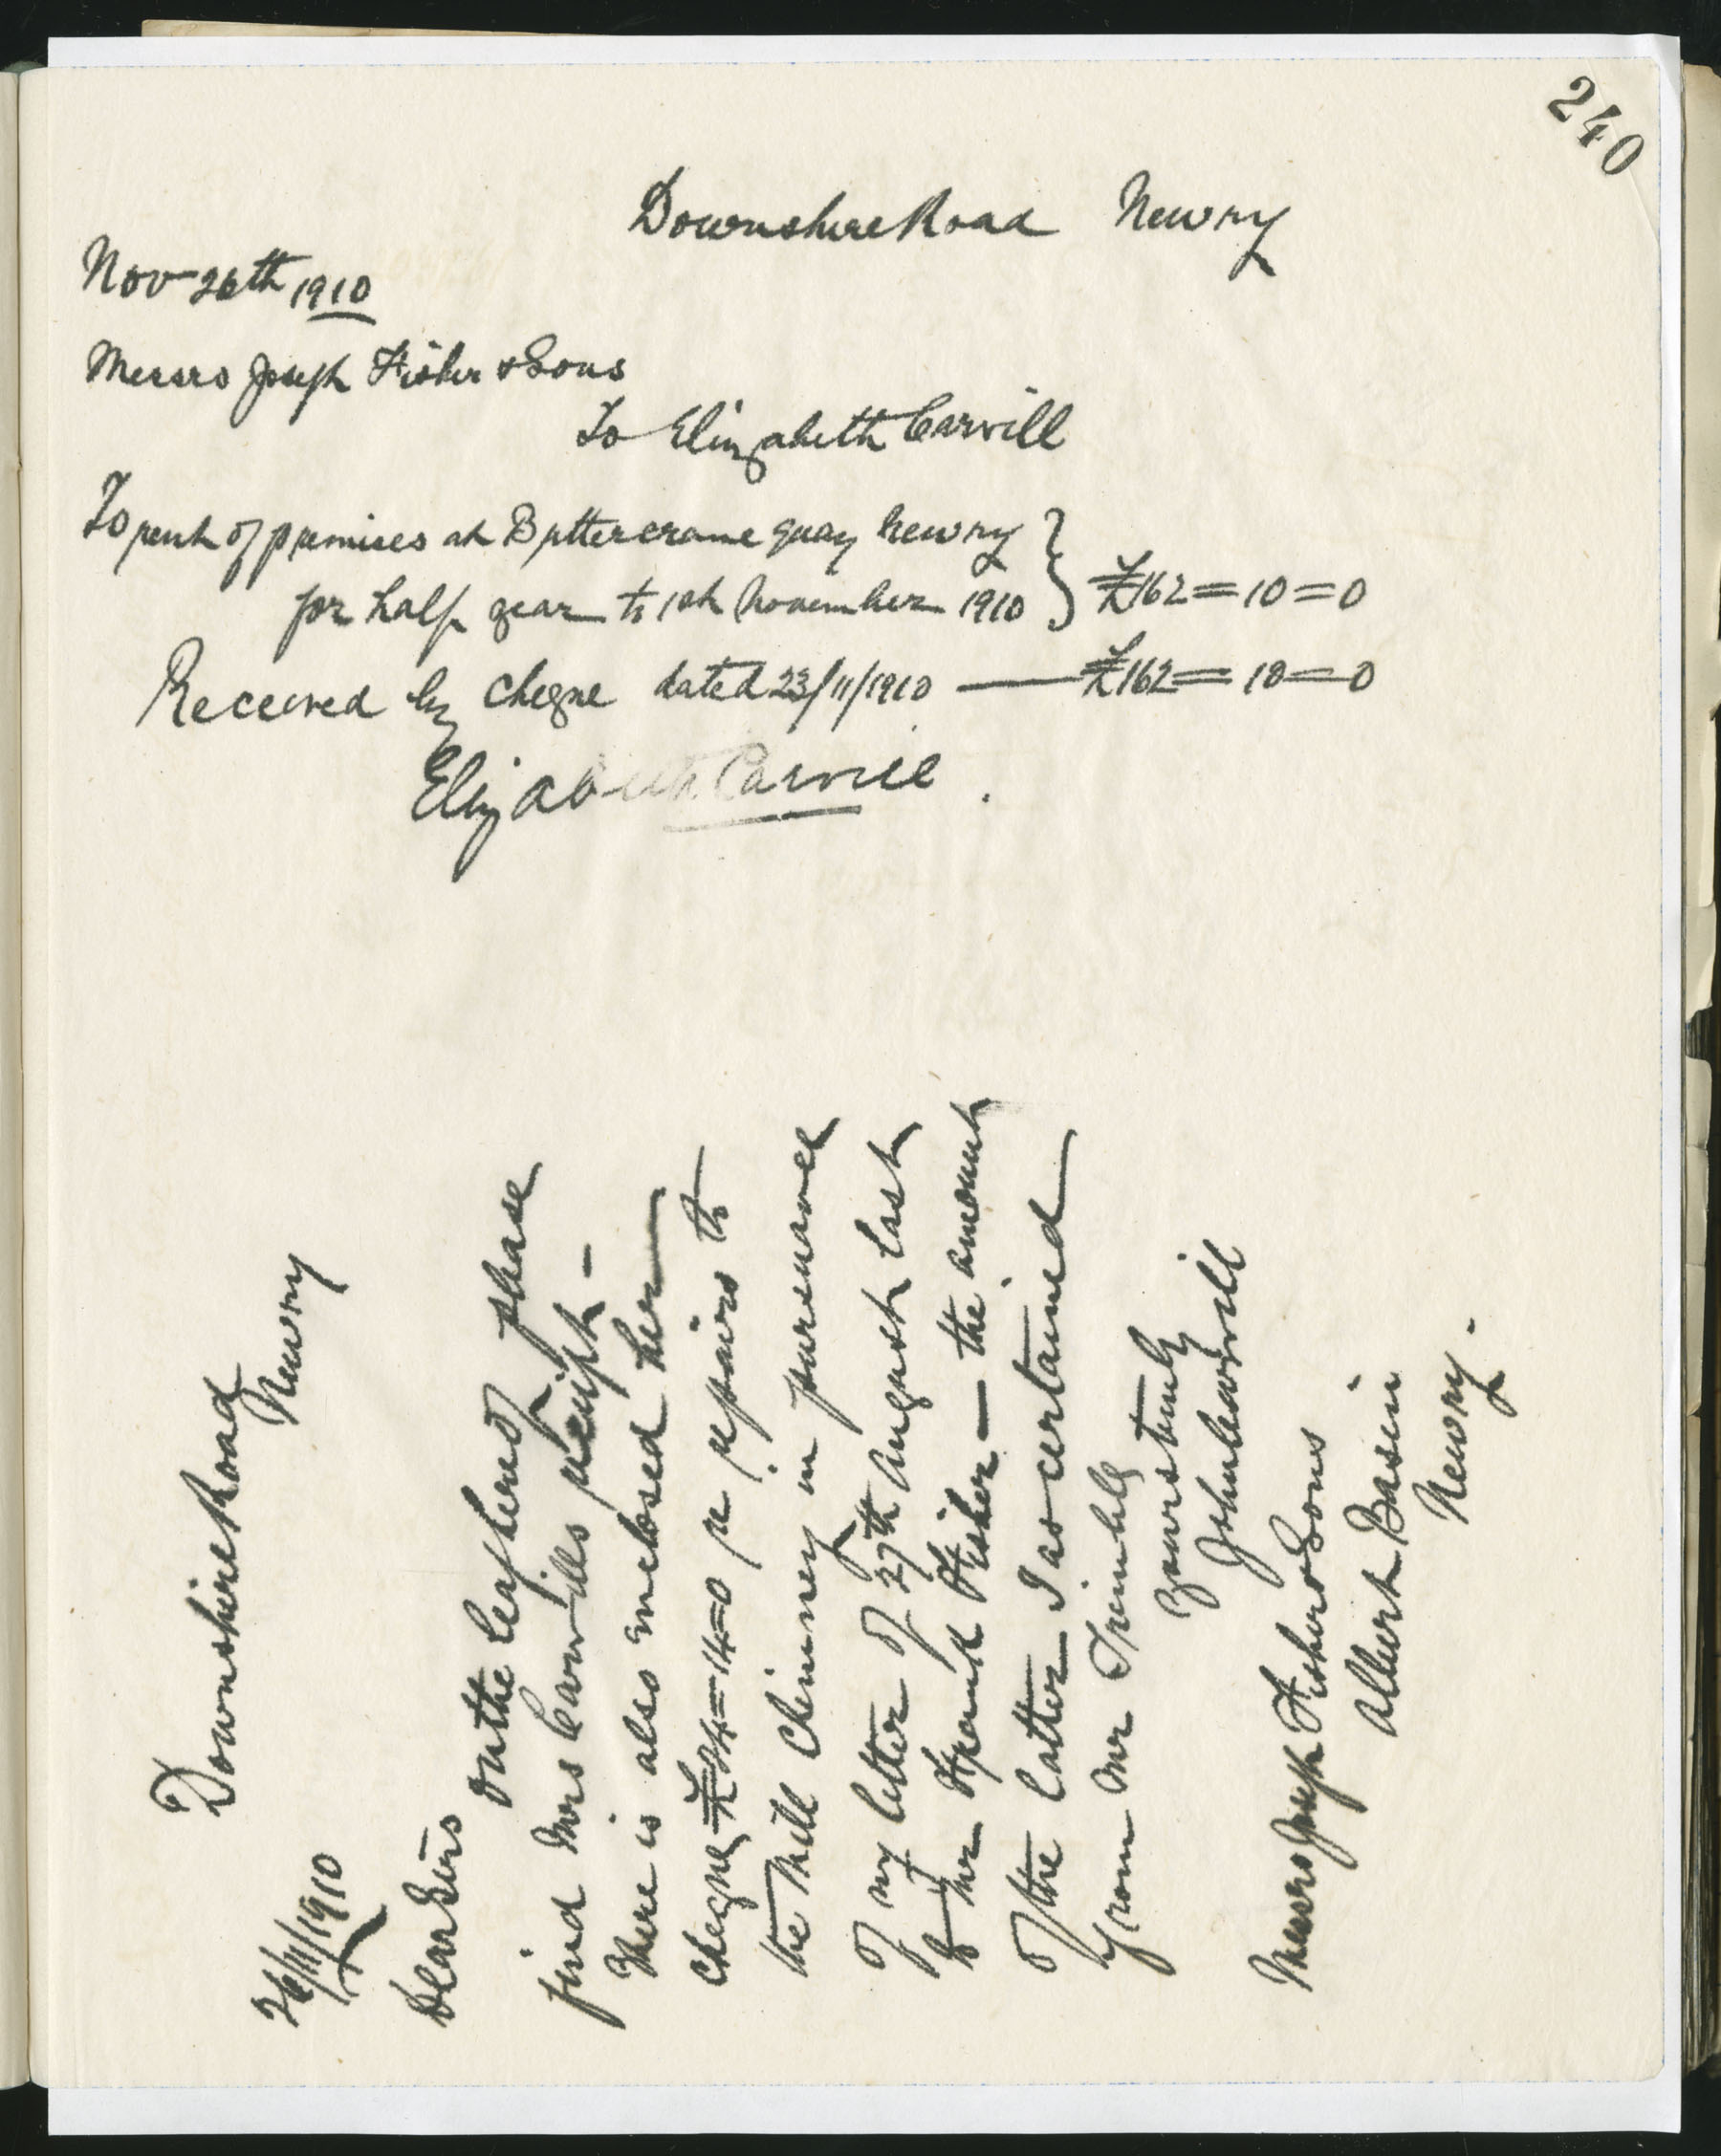 240
Downshire Road Newry
Nov 26th 1910
Messrs Joseph Fisher & Sons
To Elizabeth Carvill
To rent of premises at Buttercrane quay Newry
for half year to 1st November 1910 } £162=10=0
Received by cheque dated 23/11/1910 — £162=10=0
Elizabeth Carvill.
Downshire Road
Newry
26/11/1910
Dear Sirs
On the leaf hereof please
find Mrs Carvills receipt –
There is also enclosed her
cheque £24=14=0 re repairs to
the Mill Chimney in pursuance
of my letter of 27th August last
to Mr Frank Fisher — the amount
of the latter I ascertained
from Mr Trimble
Yours truly
John Carvill
Messrs Joseph Fisher & Sons
Albert Basin
Newry.